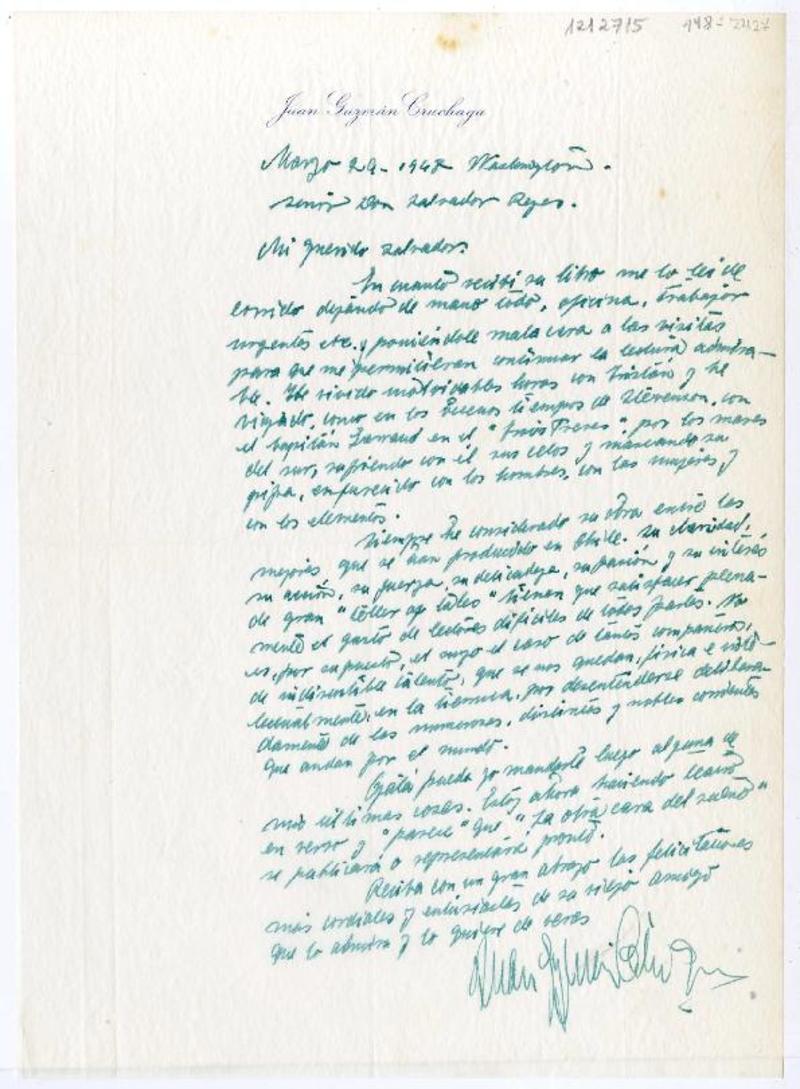 1212715 998-2427
Juan Guzmán Cruchaga
Marzo 29 - 1948 Washington.
Señor Don Salvador Reyes.
Mi querido Salvador:
En cuanto recibí su libro me lo leí de
corrido dejando de mano todo, oficina, trabajos
urgentes etc. y poniéndole mala cara a las visitas
para que me permitieran continuar la lectura admira-
ble. He vivido inolvidables horas con Tristán y he
viajado, como en los buenos tiempos de Stevenson, con
el capitán en el "Trois Freres" por los mares
del sur, sufriendo con él sus celos y mascando su
pipa, enfurecido con los hombres, con las mujeres y
con los elementos.
Siempre he considerado su obra entre las
mejores que se han producido en Chile. Su claridad,
su acción, su fuerza, su delicadeza, su pasión y su interés
de gran "teller of tales" tienen que satisfacer plena-
mente el gusto de lectores difíciles de todas partes. No
es, por supuesto, el suyo el caso de tantos compañeros,
de indiscutible talento, que se nos quedan, física e inte-
lectualmente, en la tierruca, por desentenderse delibera-
damente de las numerosas, distintas y nobles corrientes
que andan por el mundo.
Ojalá pueda yo mandarle luego alguna de
mis últimas cosas. Estoy ahora haciendo teatro
en verso y "parece" que "La otra cara del sueño"
se publicará o representará pronto.
Reciba con un gran abrazo las felicitaciones
más cordiales y entusiastas de su viejo amigo
que lo admira y lo quiere de veras
Juan Guzmán Cruchaga